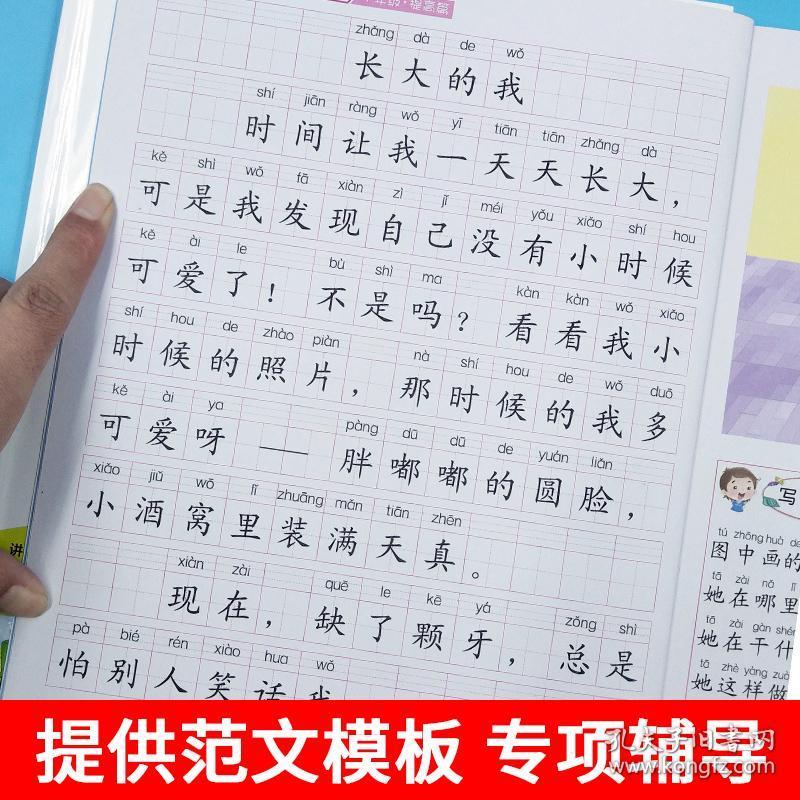 年级·提高篇
zhǎng dà de wǒ
长大的我
shí jiān ràng wǒ yī tiān tiān zhǎng dà
时间让我一天天长大，
kě shì wǒ fā xiàn zì jǐ méi yǒu xiǎo shí hou
可是我发现自己没有小时候
kě ài le bù shì ma kàn kàn wǒ xiǎo
可爱了！不是吗？看看我小
shí hou de zhào piàn nà shí hou de wǒ duō
时候的照片，那时候的我多
kě ài ya pàng dū dū de yuán liǎn
可爱呀——胖嘟嘟的圆脸，
xiǎo jiǔ wō lǐ zhuāng mǎn tiān zhēn
小酒窝里装满天真。
xiàn zài quē le kē yá zǒng shì
现在，缺了颗牙，总是
pà bié rén xiào hua wǒ
怕别人笑话我
写
tú zhōng huà de
图中画的
tā zài nǎ lǐ
她在哪里
tā zài gàn shén
她在干什
tā zhè yàng zuò
她这样做
讲
提供范文模板 专项辅导
孔夫子旧书网
www.kongfz.com